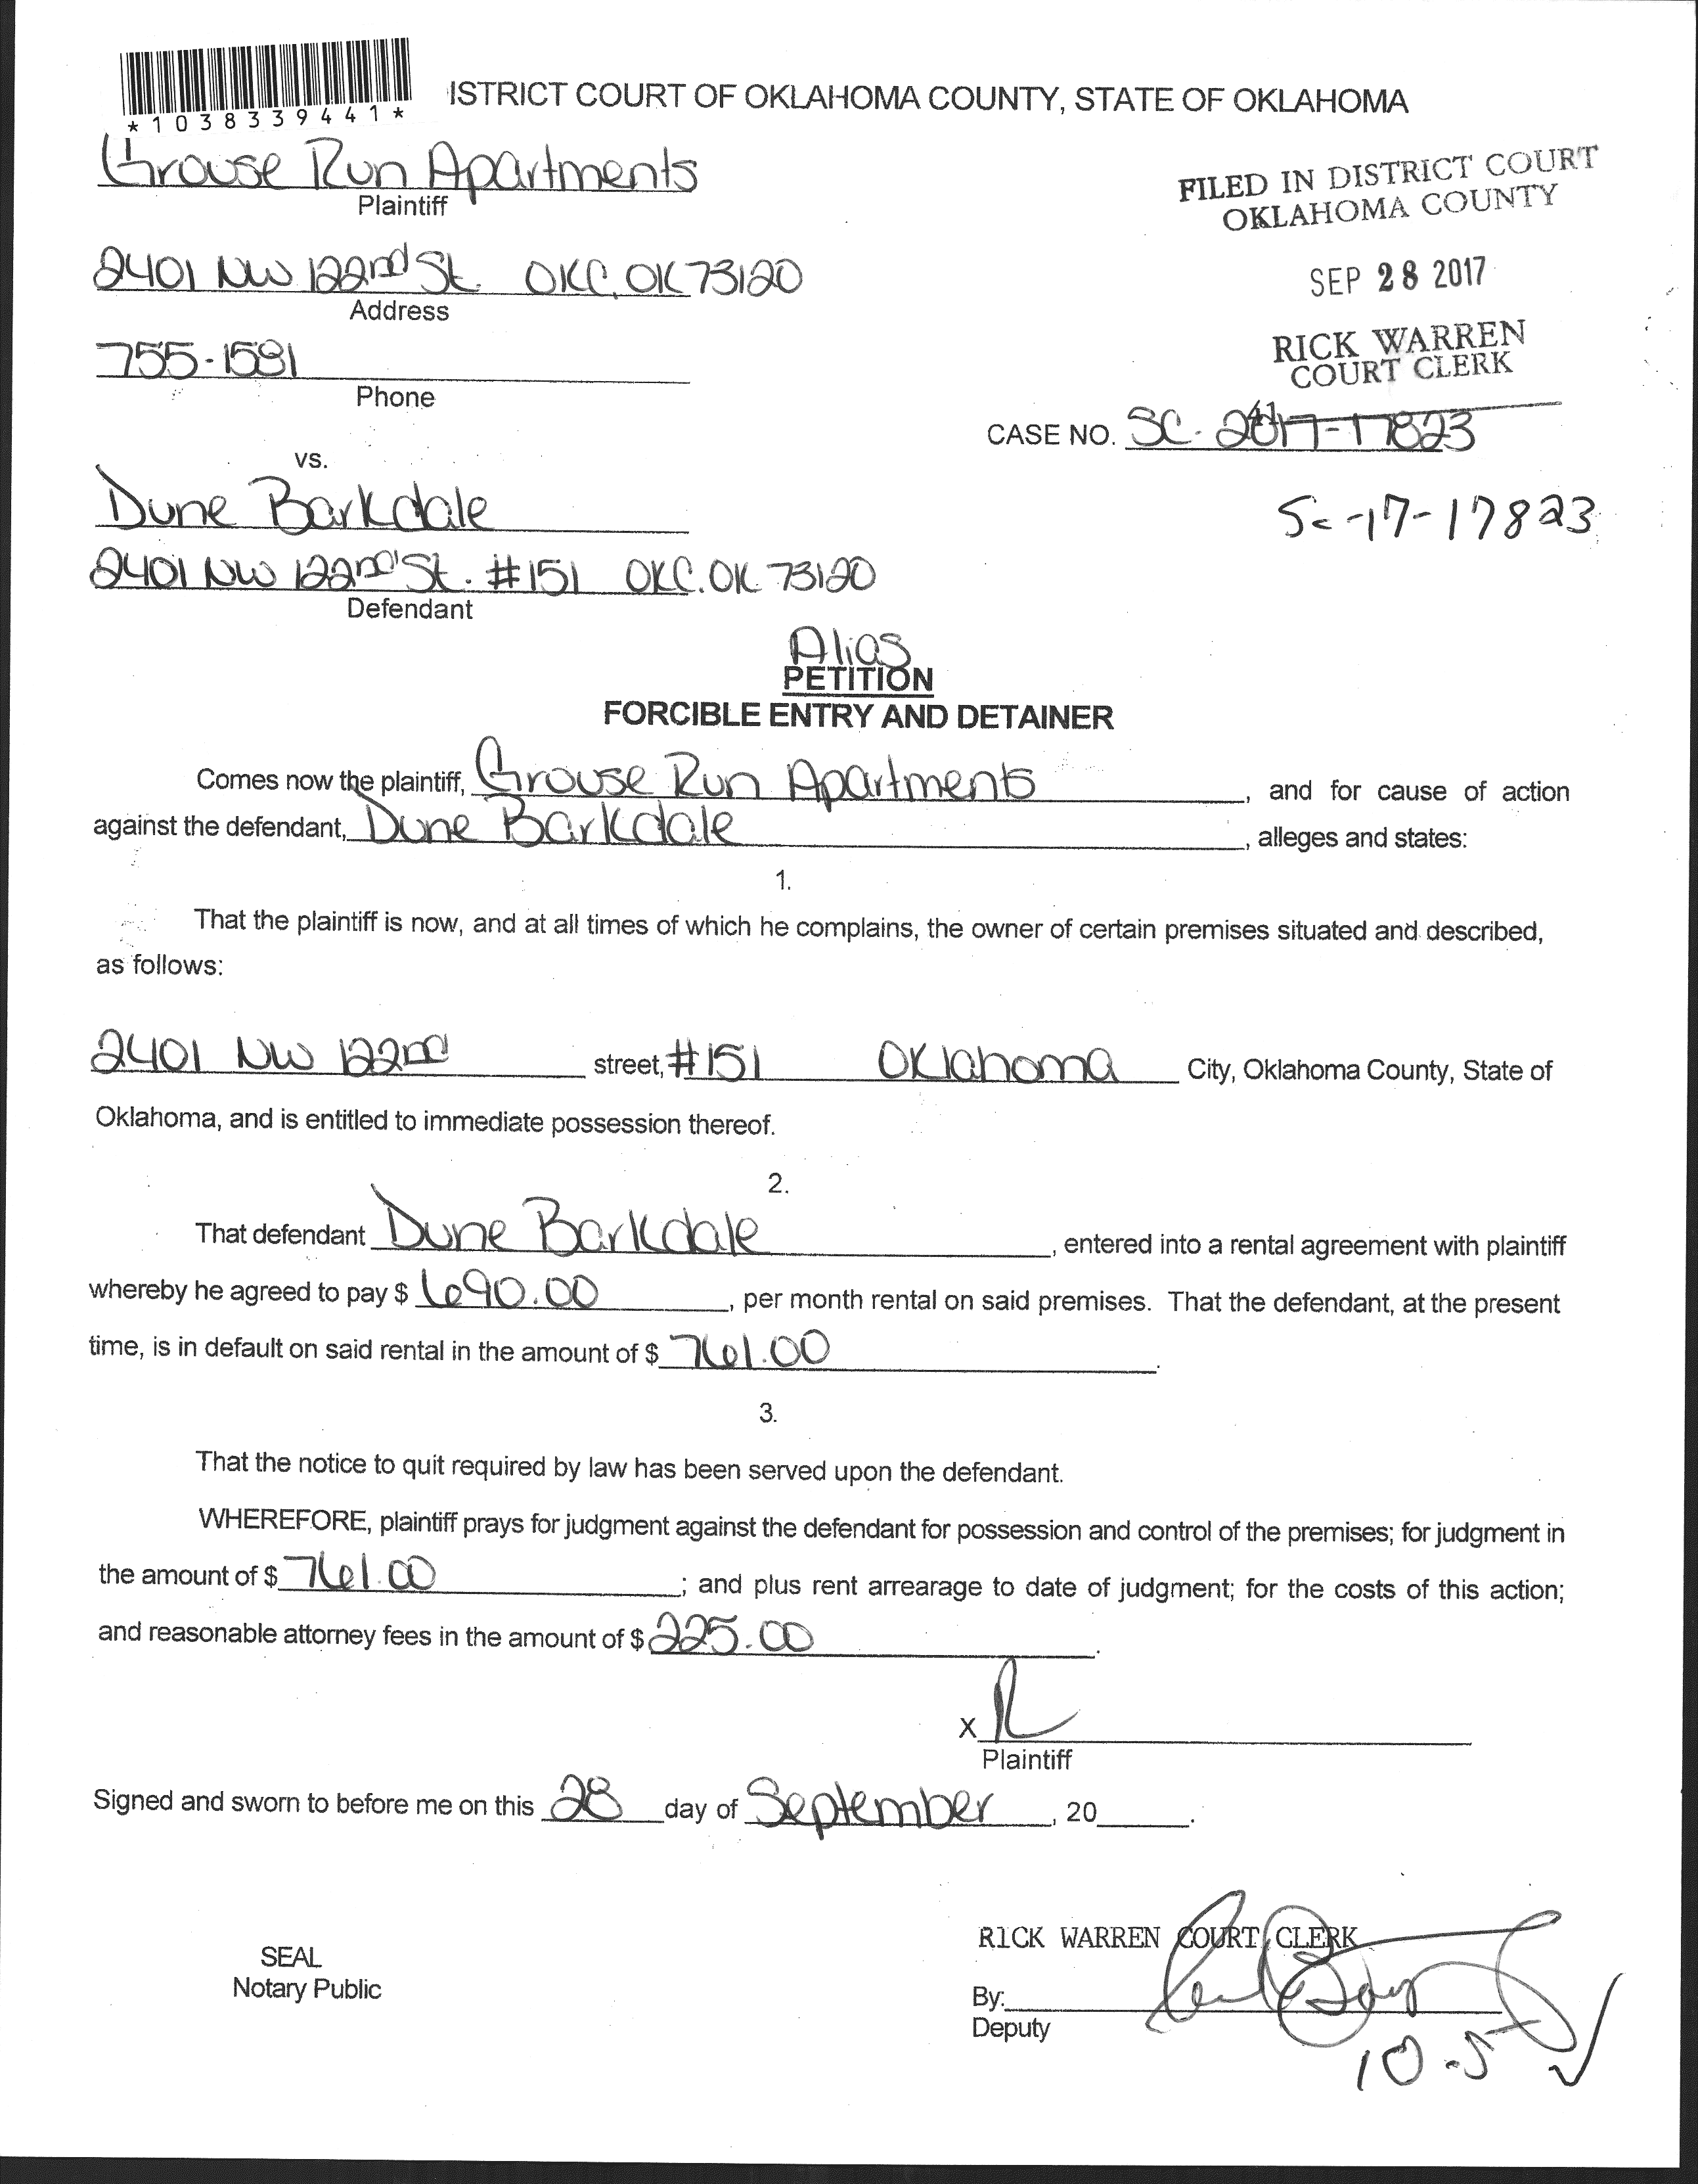 *1038339441*
ISTRICT COURT OF OKLAHOMA COUNTY, STATE OF OKLAHOMA
Grouse Run Apartments
Plaintiff
FILED IN DISTRICT COURT
OKLAHOMA COUNTY
2401 NW 122nd St. OKC, OK 73120
Address
SEP 28 2017
755-1581
Phone
RICK WARREN
COURT CLERK
CASE NO. SC-2017-17823
vs.
Dune Barkdale
SC-17-17823
2401 NW 122nd St. #151 OKC. OK. 73120
Defendant
Alias
PETITION
FORCIBLE ENTRY AND DETAINER
Comes now the plaintiff, Grouse Run Apartments, and for cause of action
against the defendant, Dune Barkdale, alleges and states:
1.
That the plaintiff is now, and at all times of which he complains, the owner of certain premises situated and described,
as follows:
2401 NW 122nd street, #151 Oklahoma City, Oklahoma County, State of
Oklahoma, and is entitled to immediate possession thereof.
2.
That defendant Dune Barkdale, entered into a rental agreement with plaintiff
whereby he agreed to pay $ 690.00, per month rental on said premises. That the defendant, at the present
time, is in default on said rental in the amount of $ 761.00.
3.
That the notice to quit required by law has been served upon the defendant.
WHEREFORE, plaintiff prays for judgment against the defendant for possession and control of the premises; for judgment in
the amount of $ 761.00; and plus rent arrearage to date of judgment; for the costs of this action;
and reasonable attorney fees in the amount of $ 225.00.
X
Plaintiff
Signed and sworn to before me on this 28 day of September, 20 .
RICK WARREN COURT CLERK
SEAL
Notary Public
By:
Deputy
10-5